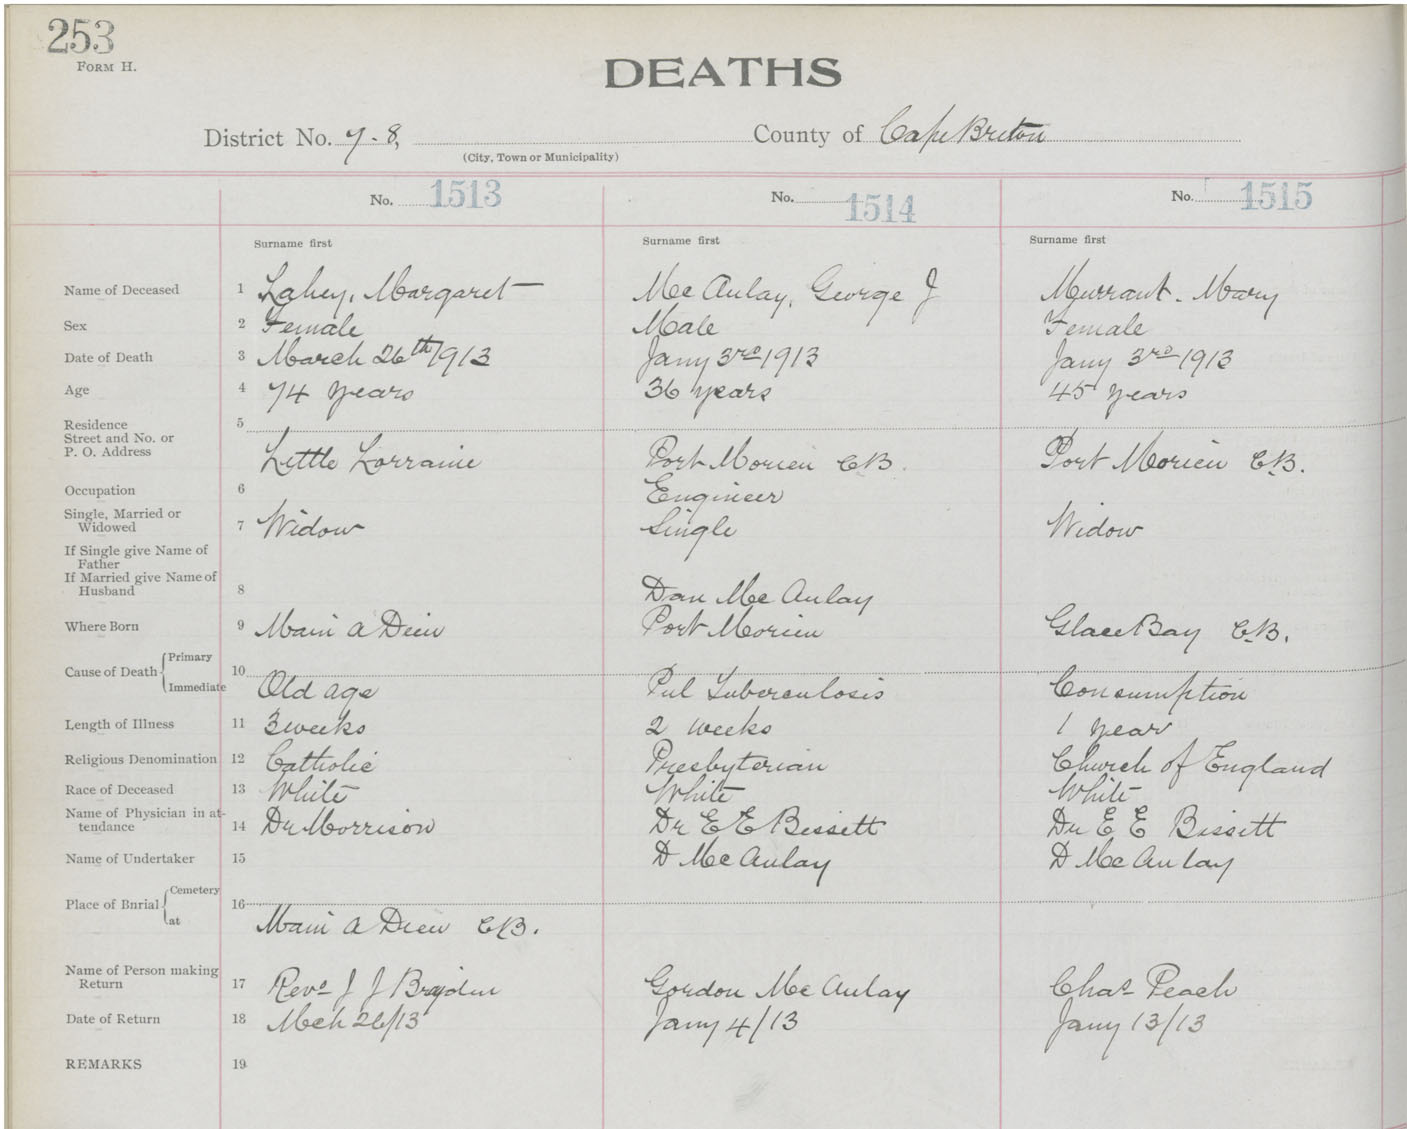 253
FORM H.
DEATHS
District No. 7-8, County of Cape Breton
(City, Town or Municipality)
No. 1513 No. 1514 No. 1515
Surname first Surname first Surname first
Name of Deceased 1 Lahey, Margaret Mc Aulay, George J Murrant. Mary
Sex 2 Female Male Female
Date of Death 3 March 26th 1913 Jany 3rd 1913 Jany 3rd 1913
Age 4 74 years 36 years 45 years
Residence 5
Street and No. or
P. O. Address Little Lorraine Port Morien C.B. Port Morien C.B.
Occupation 6 Engineer
Single, Married or
Widowed 7 Widow Single Widow
If Single give Name of
Father
If Married give Name of
Husband 8 Dan Mc Aulay
Where Born 9 Main a Dieu Port Morien Glace Bay C.B.
Cause of Death Primary 10
Immediate Old age Pul Tuberculosis Consumption
Length of Illness 11 3 weeks 2 weeks 1 year
Religious Denomination 12 Catholic Presbyterian Church of England
Race of Deceased 13 White White White
Name of Physician in at-
tendance 14 Dr Morrison Dr E E Bissett Dr E E Bissett
Name of Undertaker 15 D Mc Aulay D Mc Aulay
Place of Bnrial Cemetery 16
at Main a Dieu C.B.
Name of Person making
Return 17 Revd J J Gordon Mc Aulay Chas Peach
Date of Return 18 Mch 26/13 Jany 4/13 Jany 13/13
REMARKS 19